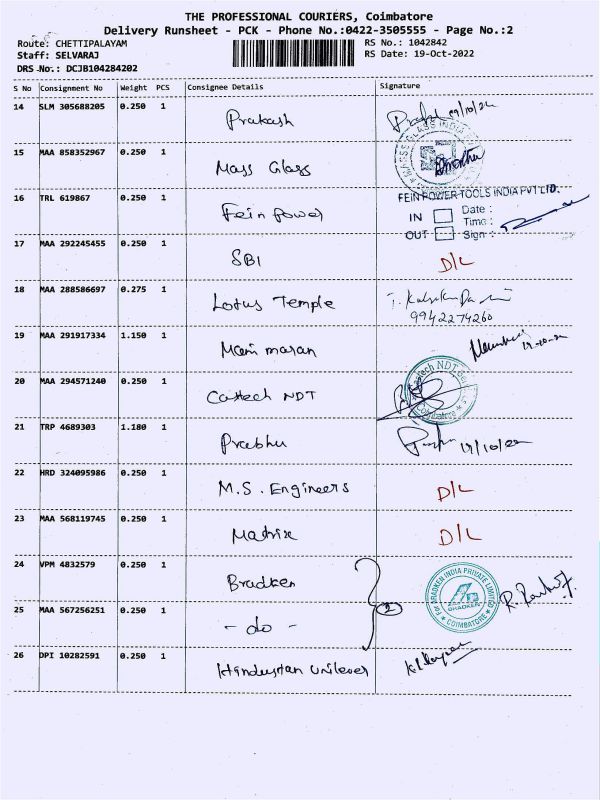 THE PROFESSIONAL COURIERS, Coimbatore
Delivery Runsheet - PCK - Phone No.:0422-3505555 - Page No.:2
Route: CHETTIPALAYAM RS No.: 1042842
Staff: SELVARAJ RS Date: 19-Oct-2022
DRS No.: DCJB104284202
S No Consignment No Weight PCS Consignee Details Signature
14 SLM 305688205 0.250 1 Prakash 19/10/22
15 MAA 858352967 0.250 1 Mass Glass
16 TRL 619867 0.250 1 Fein Power
FEIN POWER TOOLS INDIA PVT LTD.
IN Date :
Time :
OUT Sign :
17 MAA 292245455 0.250 1 SBI D/L
18 MAA 288586697 0.275 1 Lotus Temple
9942274260
19 MAA 291917334 1.150 1 Mani maran 19-10-22
20 MAA 294571240 0.250 1 Castech NDT
Coimbatore
21 TRP 4689303 1.180 1 Prabhu 19/10/22
22 HRD 324095986 0.250 1 M.S. Engineers D/L
23 MAA 568119745 0.250 1 Matrix D/L
24 VPM 4832579 0.250 1 Bradken
For BRADKEN INDIA PRIVATE LIMITED
BRADKEN
COIMBATORE
25 MAA 567256251 0.250 1 - do - 2
26 DPI 10282591 0.250 1 Hindustan Unilever